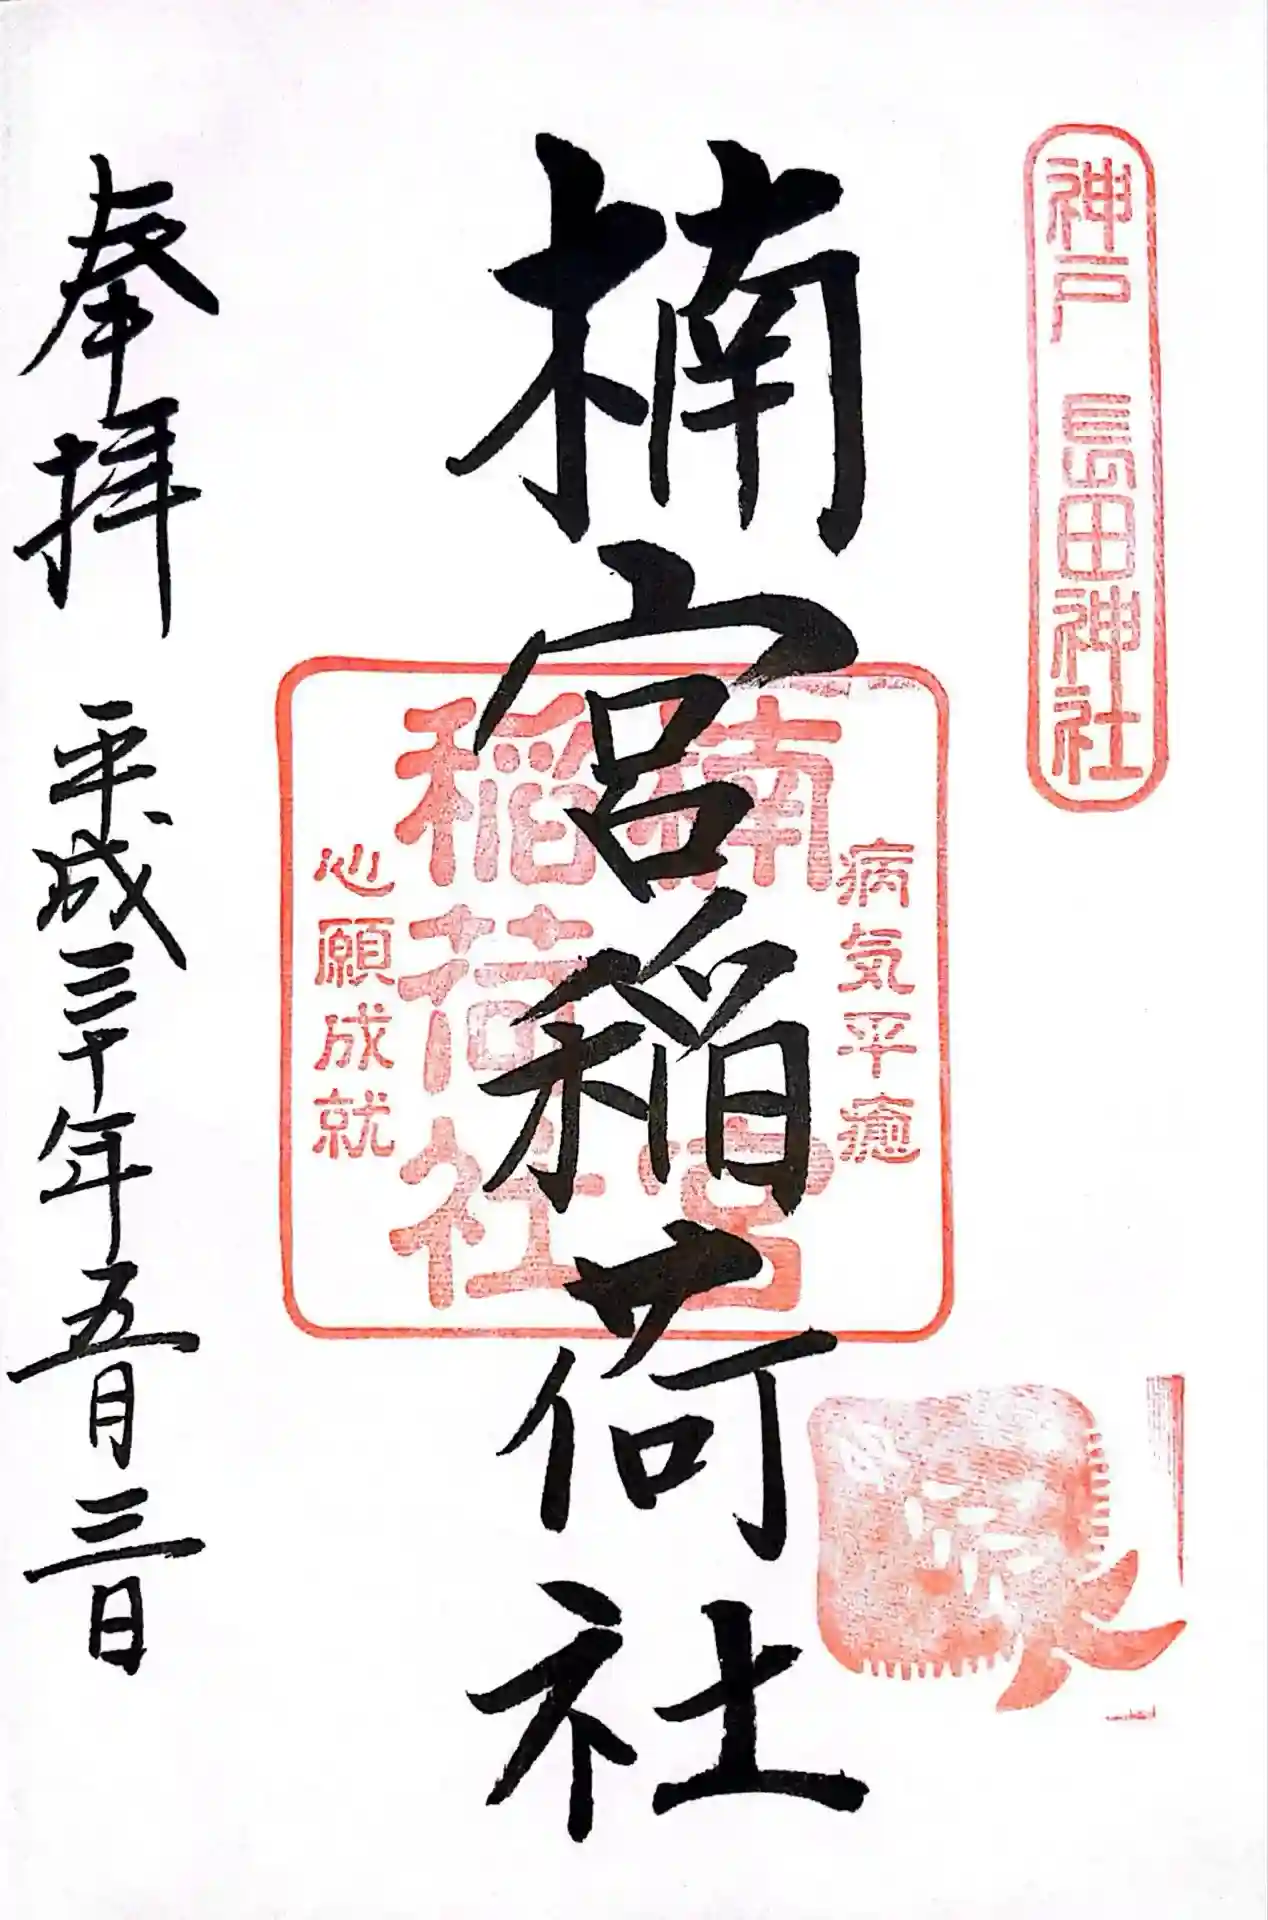 神戸 長田神社
楠宮稲荷社
病気平癒
楠宮
稲荷社
心願成就
奉拝 平成三十年五月三日